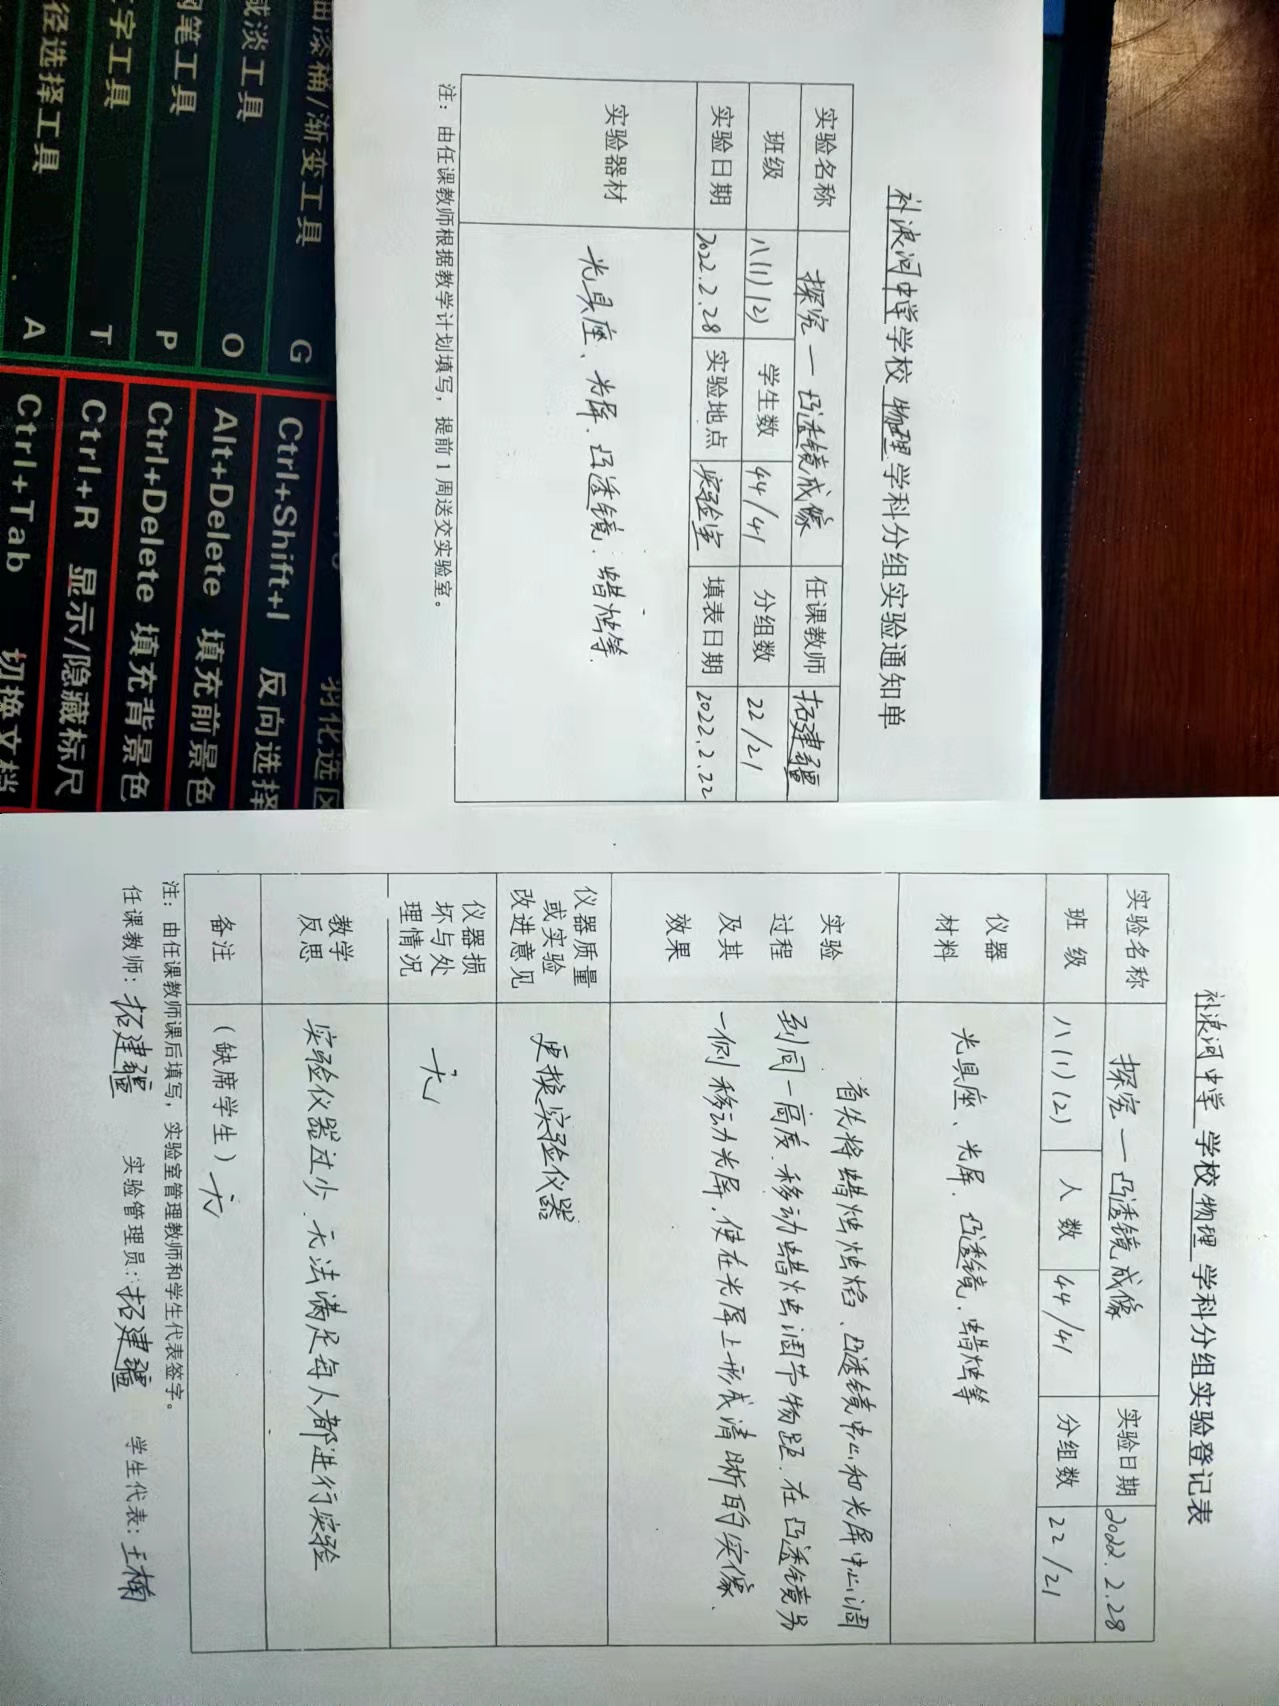 补浪河中学学校物理学科分组实验通知单
实验名称 探究一凸透镜成像 任课教师 拓建疆
班级 八(1)(2) 学生数 44/41 分组数 22/21
实验日期 2022.2.28 实验地点 实验室 填表日期 2022.2.22
实验器材 光具座、光屏、凸透镜、蜡烛等.
注：由任课教师根据教学计划填写，提前1周送交实验室。
油漆桶/渐变工具 G
减淡工具 O
钢笔工具 P
字工具 T
径选择工具 A
羽化选区
Ctrl+Shift+I 反向选择
Alt+Delete 填充前景色
Ctrl+Delete 填充背景色
Ctrl+R 显示/隐藏标尺
Ctrl+Tab 切换文档
补浪河中学学校物理学科分组实验登记表
实验名称 探究一凸透镜成像 实验日期 2022.2.28
班级 八(1)(2) 人数 44/41 分组数 22/21
仪器
材料
光具座、光屏、凸透镜、蜡烛等
实验
过程
及其
效果
首先将蜡烛烛焰、凸透镜中心和光屏中心调
到同一高度.移动蜡烛调节物距.在凸透镜另
一侧移动光屏.使在光屏上形成清晰的实像.
仪器质量
或实验
改进意见
更换实验仪器
仪器损
坏与处
理情况
无
教学
反思
实验仪器过少.无法满足每人都进行实验
备注 (缺席学生) 无
注：由任课教师课后填写，实验室管理教师和学生代表签字。
任课教师：拓建疆 实验管理员：拓建疆 学生代表：王楠